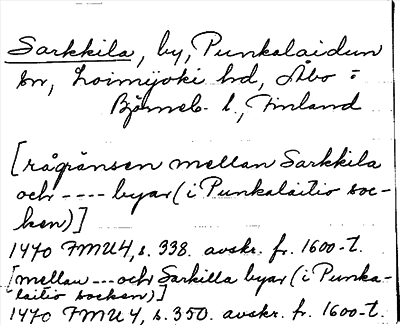 Sarkkila, by, Punkalaidun
sn, Loimijoki hd, Åbo =
Björneb. l., Finland
[rågränsen mellan Sarkkila
och ---- byar (i Punkalaitio soc-
ken)]
1470 FMU 4, s. 338. avskr. fr. 1600-t.
[mellan --- och Sarkilla byar (i Punka-
laitio socken)]
1470 FMU 4, s. 350. avskr. fr. 1600-t.